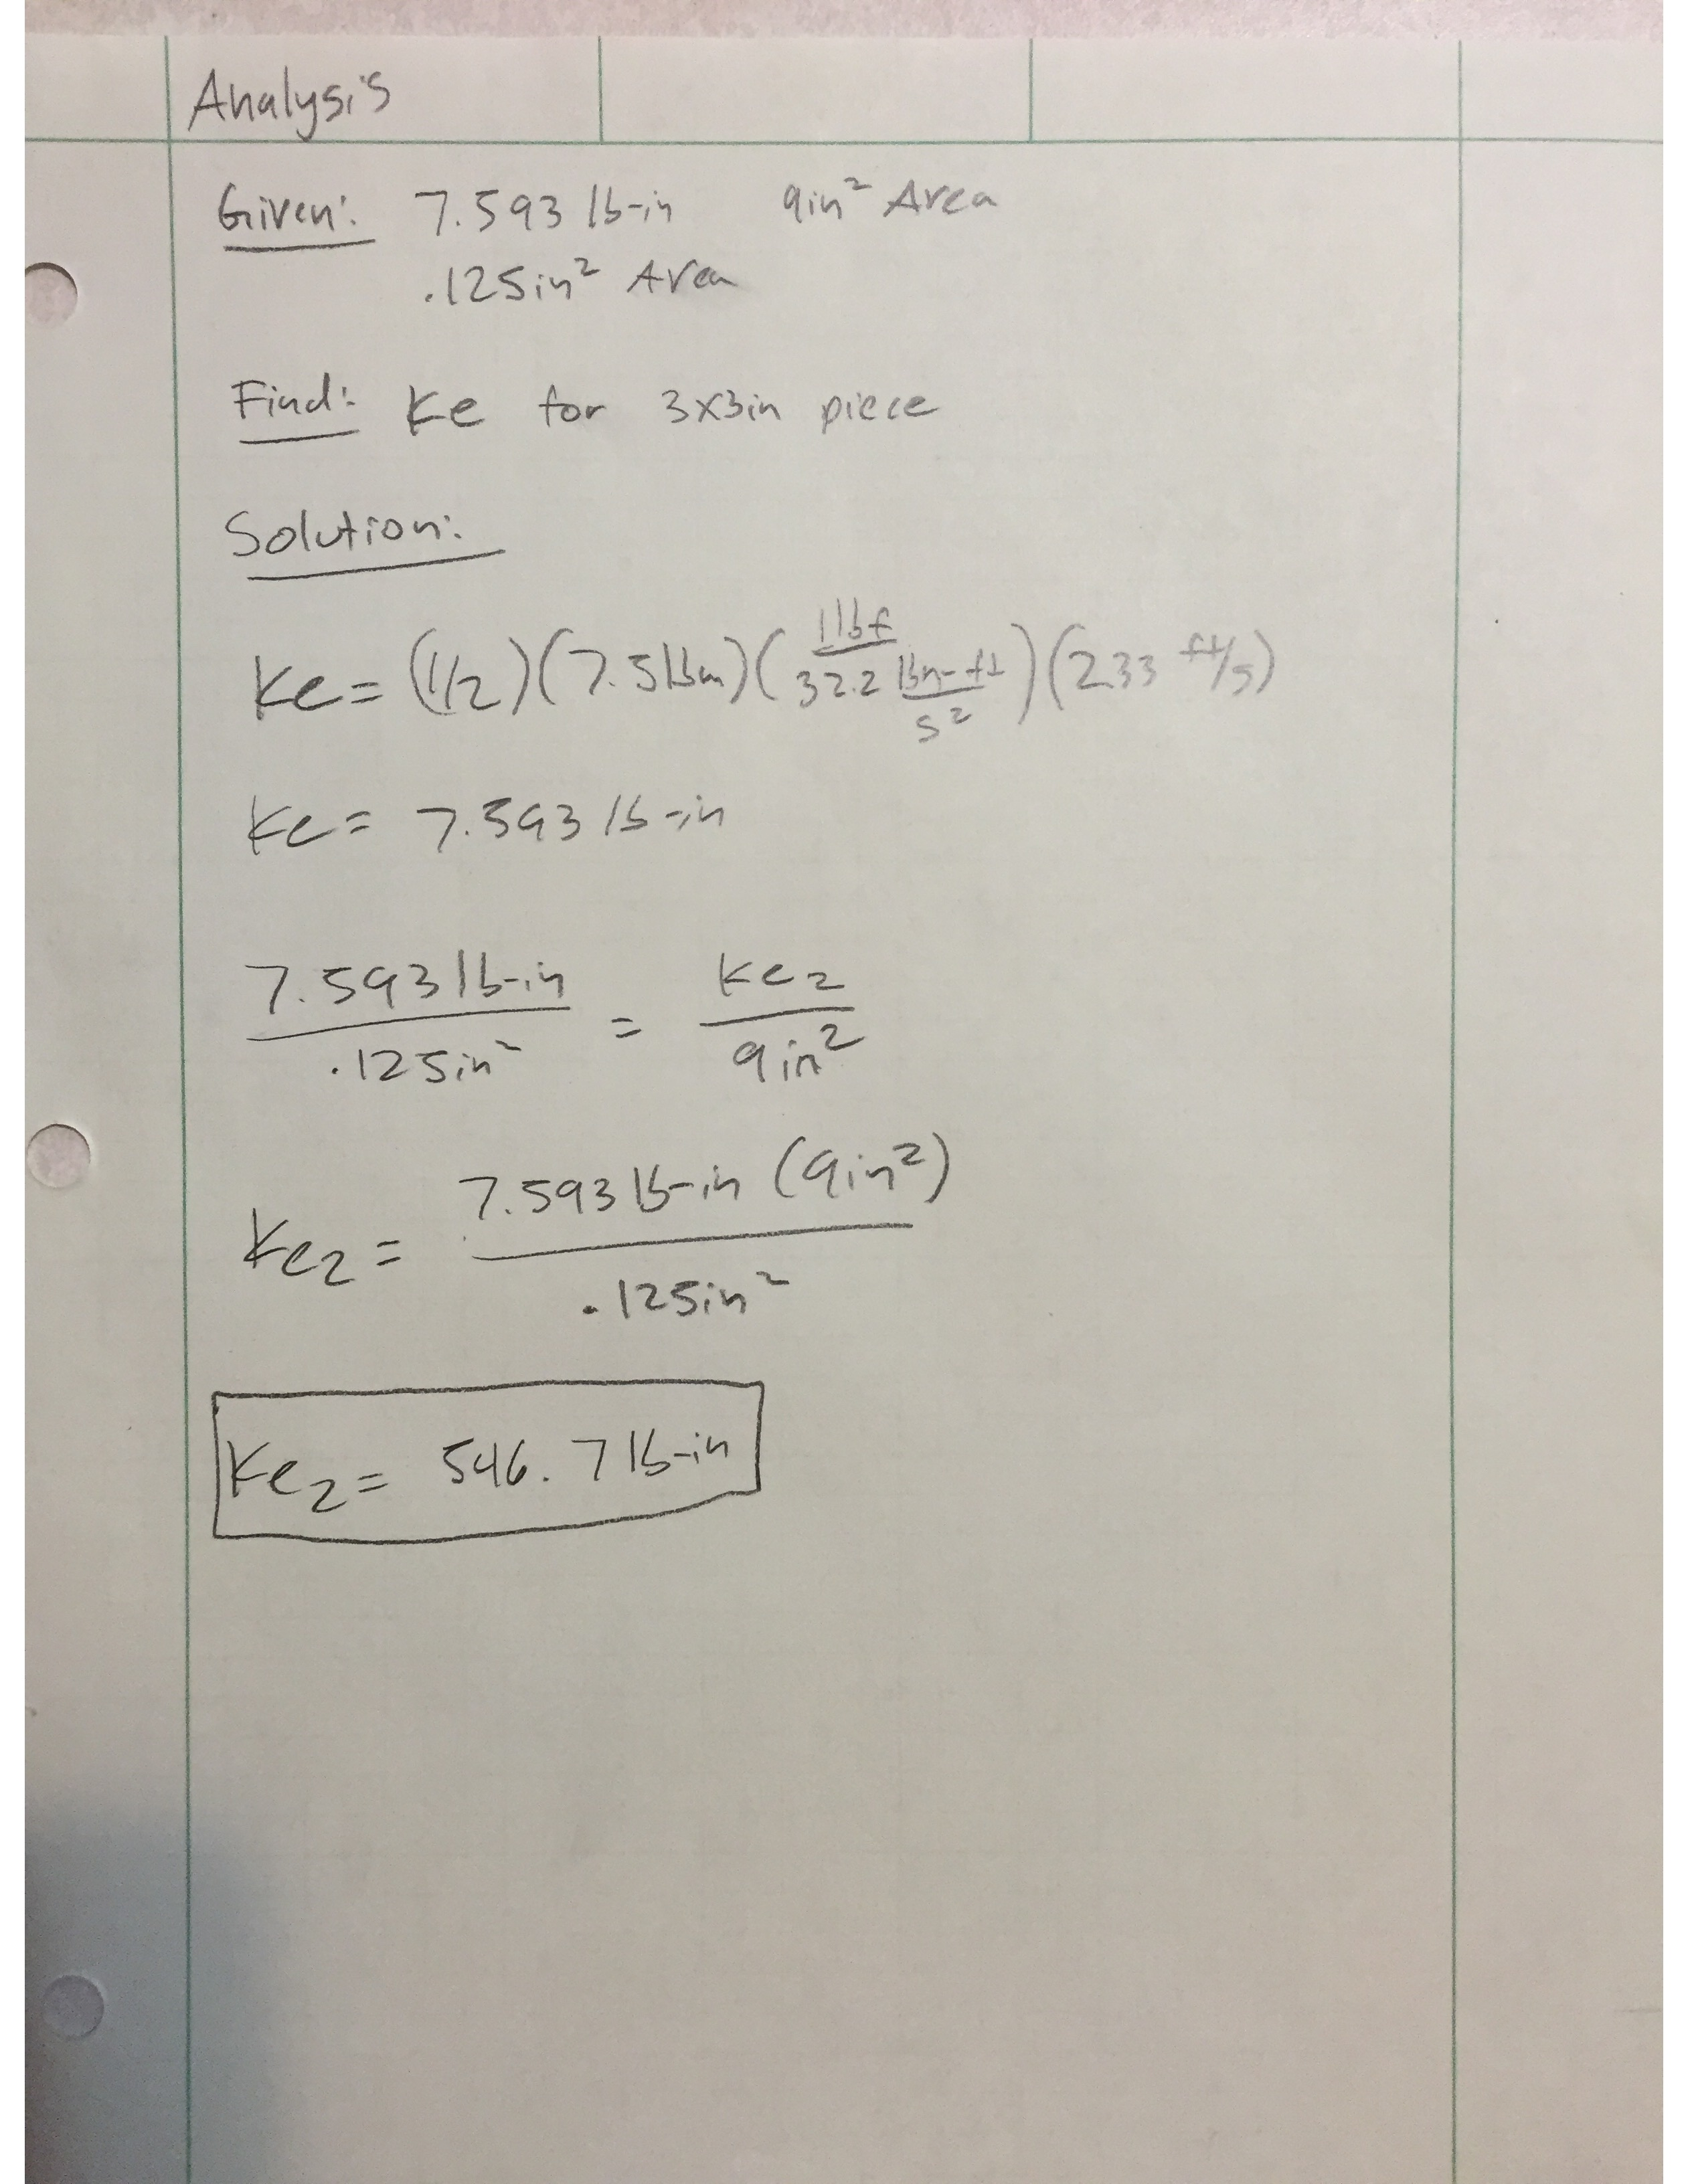 Analysis
Given: 7.593 lb-in 9in² Area
.125in² Area
Find: Ke for 3x3in piece
Solution:
Ke = (1/2)(7.5lbm)(1lbf / 32.2 lbm-ft/s²)(2.33 ft/s)
Ke = 7.593 lb-in
7.593 lb-in / .125in² = Ke₂ / 9in²
Ke₂ = 7.593 lb-in (9in²) / .125in²
Ke₂ = 546.7 lb-in